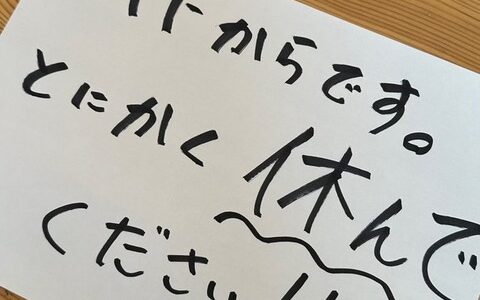 からです。
とにかく休んで
ください